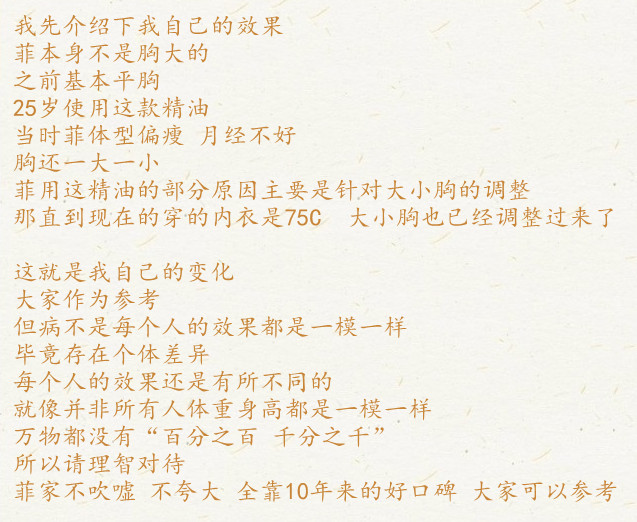 我先介绍下我自己的效果
菲本身不是胸大的
之前基本平胸
25岁使用这款精油
当时菲体型偏瘦 月经不好
胸还一大一小
菲用这精油的部分原因主要是针对大小胸的调整
那直到现在的穿的内衣是75C 大小胸也已经调整过来了
这就是我自己的变化
大家作为参考
但病不是每个人的效果都是一模一样
毕竟存在个体差异
每个人的效果还是有所不同的
就像并非所有人体重身高都是一模一样
万物都没有“百分之百 千分之千”
所以请理智对待
菲家不吹嘘 不夸大 全靠10年来的好口碑 大家可以参考